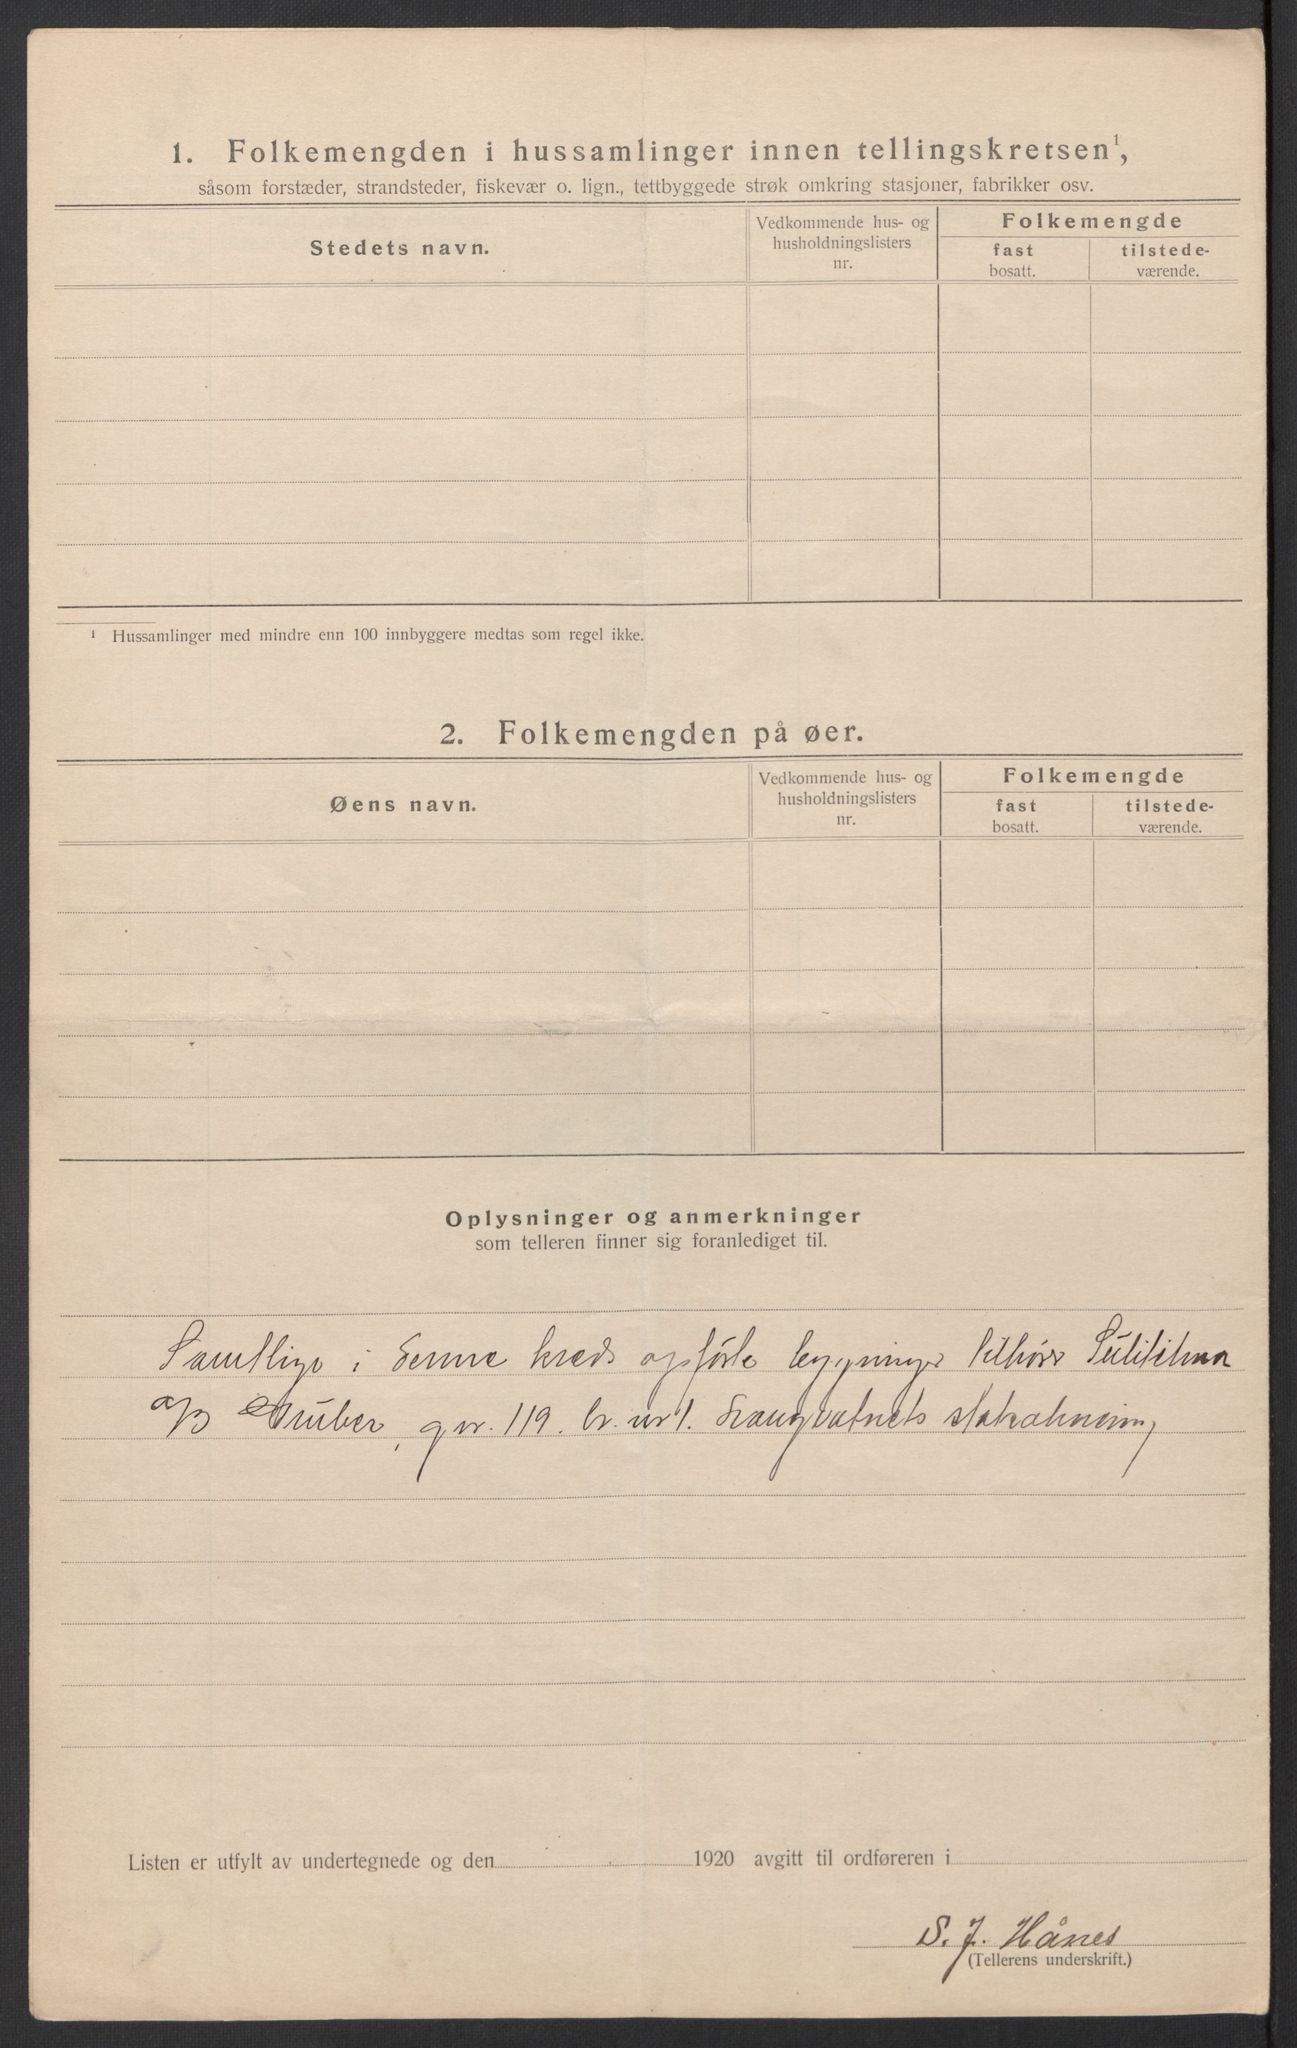 1. Folkemengden i hussamlinger innen tellingskretsen¹,
såsom forstæder, strandsteder, fiskevær o. lign., tettbyggede strøk omkring stasjoner, fabrikker osv.
Stedets navn.
Vedkommende hus- og
husholdningslisters
nr.
Folkemengde
fast
bosatt.
tilstede-
værende.
¹ Hussamlinger med mindre enn 100 innbyggere medtas som regel ikke.
2. Folkemengden på øer.
Øens navn.
Vedkommende hus- og
husholdningslisters
nr.
Folkemengde
fast
bosatt.
tilstede-
værende.
Oplysninger og anmerkninger
som telleren finner sig foranlediget til.
Samtlige i denne kreds opførte bygninger tilhører Sulitelma
A/B Gruber, gnr. 119. br. nr 1. Langvatnets
Listen er utfylt av undertegnede og den 1920 avgitt til ordføreren i
S. J. Hånes
(Tellerens underskrift.)